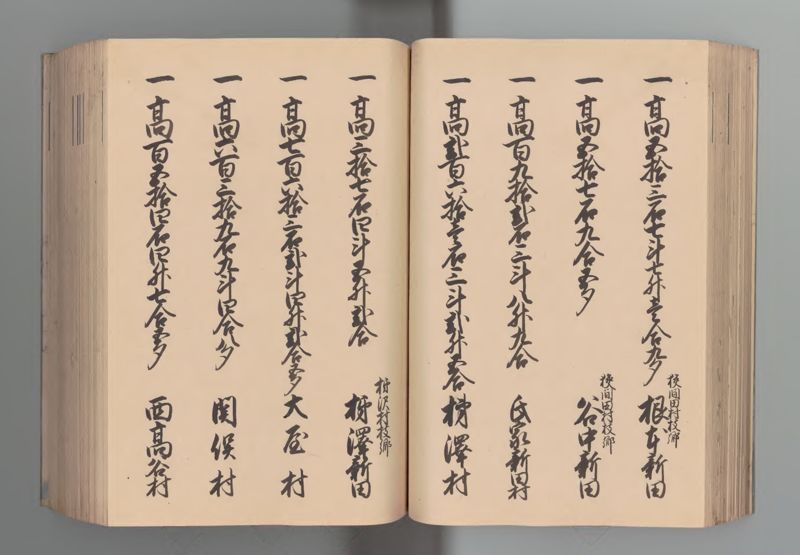 一高五拾三石七斗七升壱合九夕
狹間田村枝郷
根本新田
一高五拾七石九合五夕
狹間田村枝郷
谷中新田
一高百九拾弐石三斗八升九合 氏家新田村
一高弐百六拾壱石三斗弐升五合 澤村
一高三拾七石四斗五升弐合
沢村枝郷
澤新田
一高七百六拾三石弐斗四升弐合五夕 大屋村
一高六百三拾九石九斗四合八夕 関俣村
一高百五拾四石四升七合五夕 西高谷村